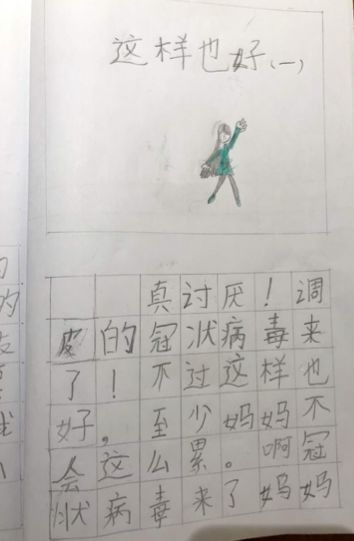 这样也好(一)
真讨厌！调
皮的冠状病毒来
了！不过这样也
好，至少妈妈不
会这么累。啊冠
状病毒来了妈妈